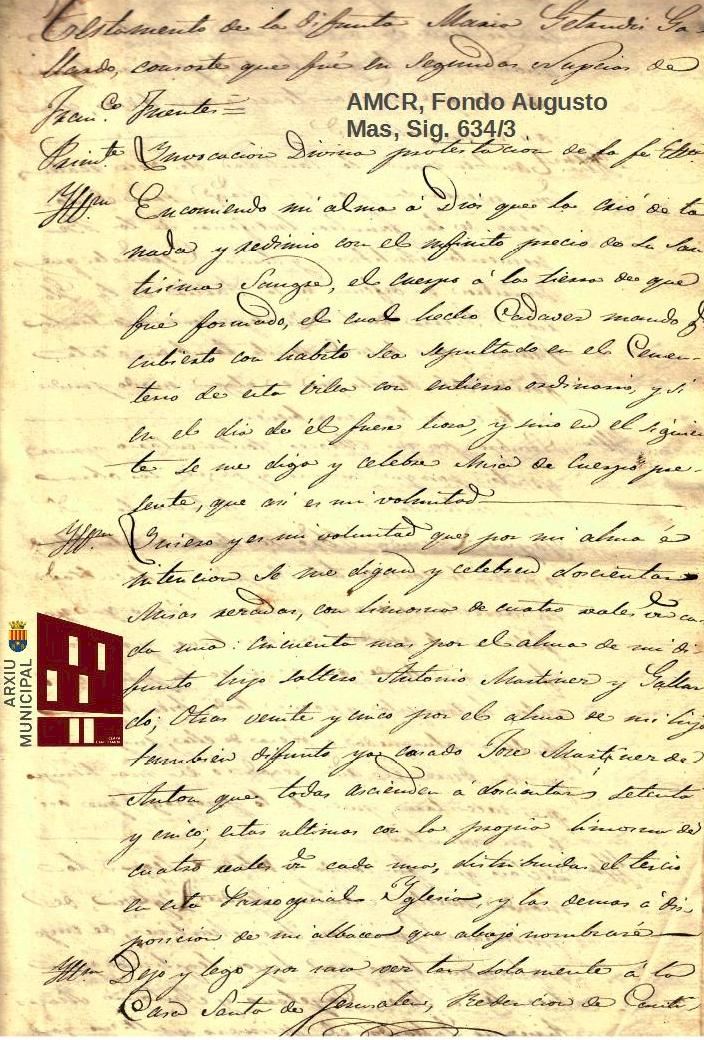 Testamento de la difunta Maria Gelandis Ga-
llardo, consorte que fué en segundas Nupcias de
Fran.co Fuentes=
AMCR, Fondo Augusto
Mas, Sig. 634/3
Primte Ynvocacion Divina protestacion de la fe Etta
Yttm Encomiendo mi alma á Dios que la crió de la
nada y redimio con el infinito precio de su San
tisima Sangre, el cuerpo á la tierra de que
fué formado, el cual hecho Cadaver mando q
cubierto con habito sea sepultado en el Cemen-
terio de esta Villa con entierro ordinario, y si
en el dia de él fuere hora, y sino en el siguien
te se me diga y celebre Misa de Cuerpo pre-
sente, que asi es mi voluntad
Yttm Quiero y es mi voluntad que por mi alma é
intencion se me digan y celebren doscientas
Misas rezadas, con limosna de cuatro reales vn ca
da una: cincuenta mas por el alma de mi di
funto hijo soltero Antonio Martinez y Gallar
do; Otras veinte y cinco por el alma de mi hijo
tambien difunto ya casado Jose Martinez de
Anton que todas ascienden á doscientas setenta
y cinco; estas ultimas con la propia limosna de
cuatro reales vn cada una, distribuidas el tercio
en esta Parroquial Yglesia, y las demas á dis
posicion de mi albacea que abajo nombraré
Yttm Dejo y lego por una vez tan solamente á la
Casa Santa de Jerusalen, Redencion de Cauti
ARXIU
MUNICIPAL